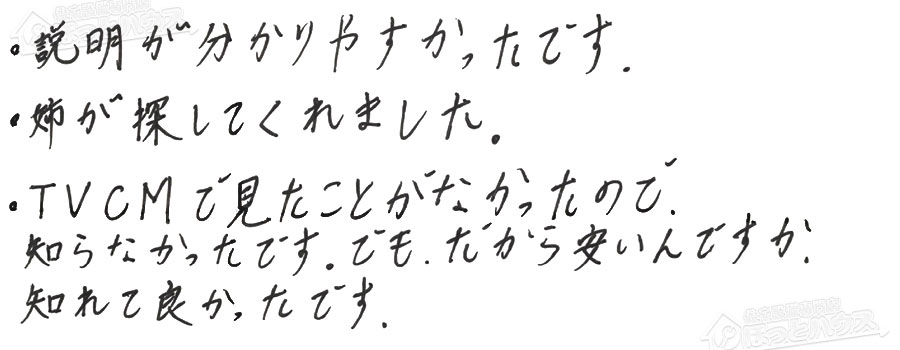 ・説明が分かりやすかったです.
・姉が探してくれました。
・TVCMで見たことがなかったので、
知らなかったです。でも、だから安いんですか、
知れて良かったです.
ほっとハウス